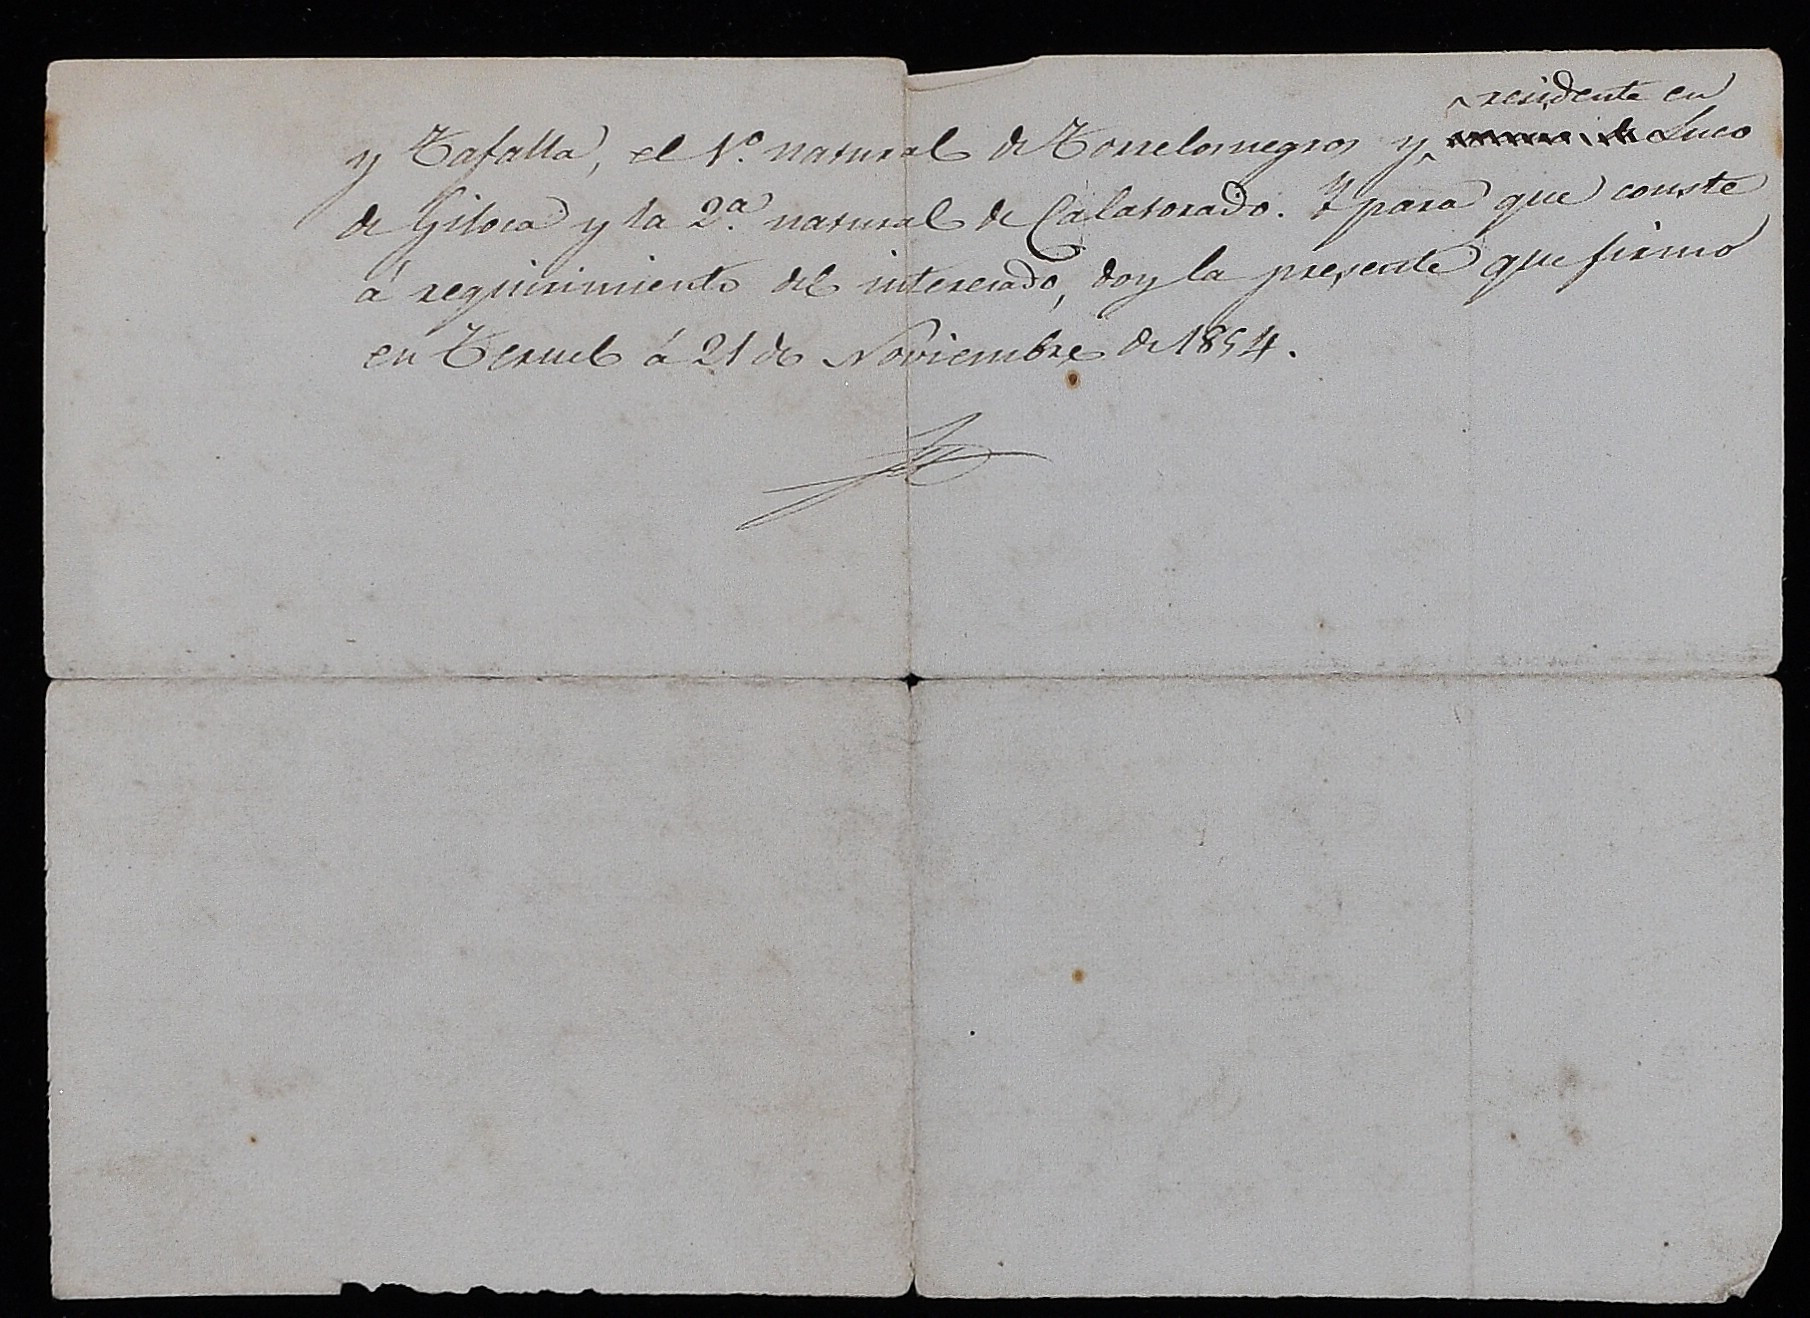 residente en
y Tafalla, el 1º. natural de Torrelosnegros y Luco
de Giloca y la 2ª. natural de Calatorado. Y para que conste
á requirimiento del interesado, doy la presente que firmo
en Teruel á 21 de Noviembre de 1854.